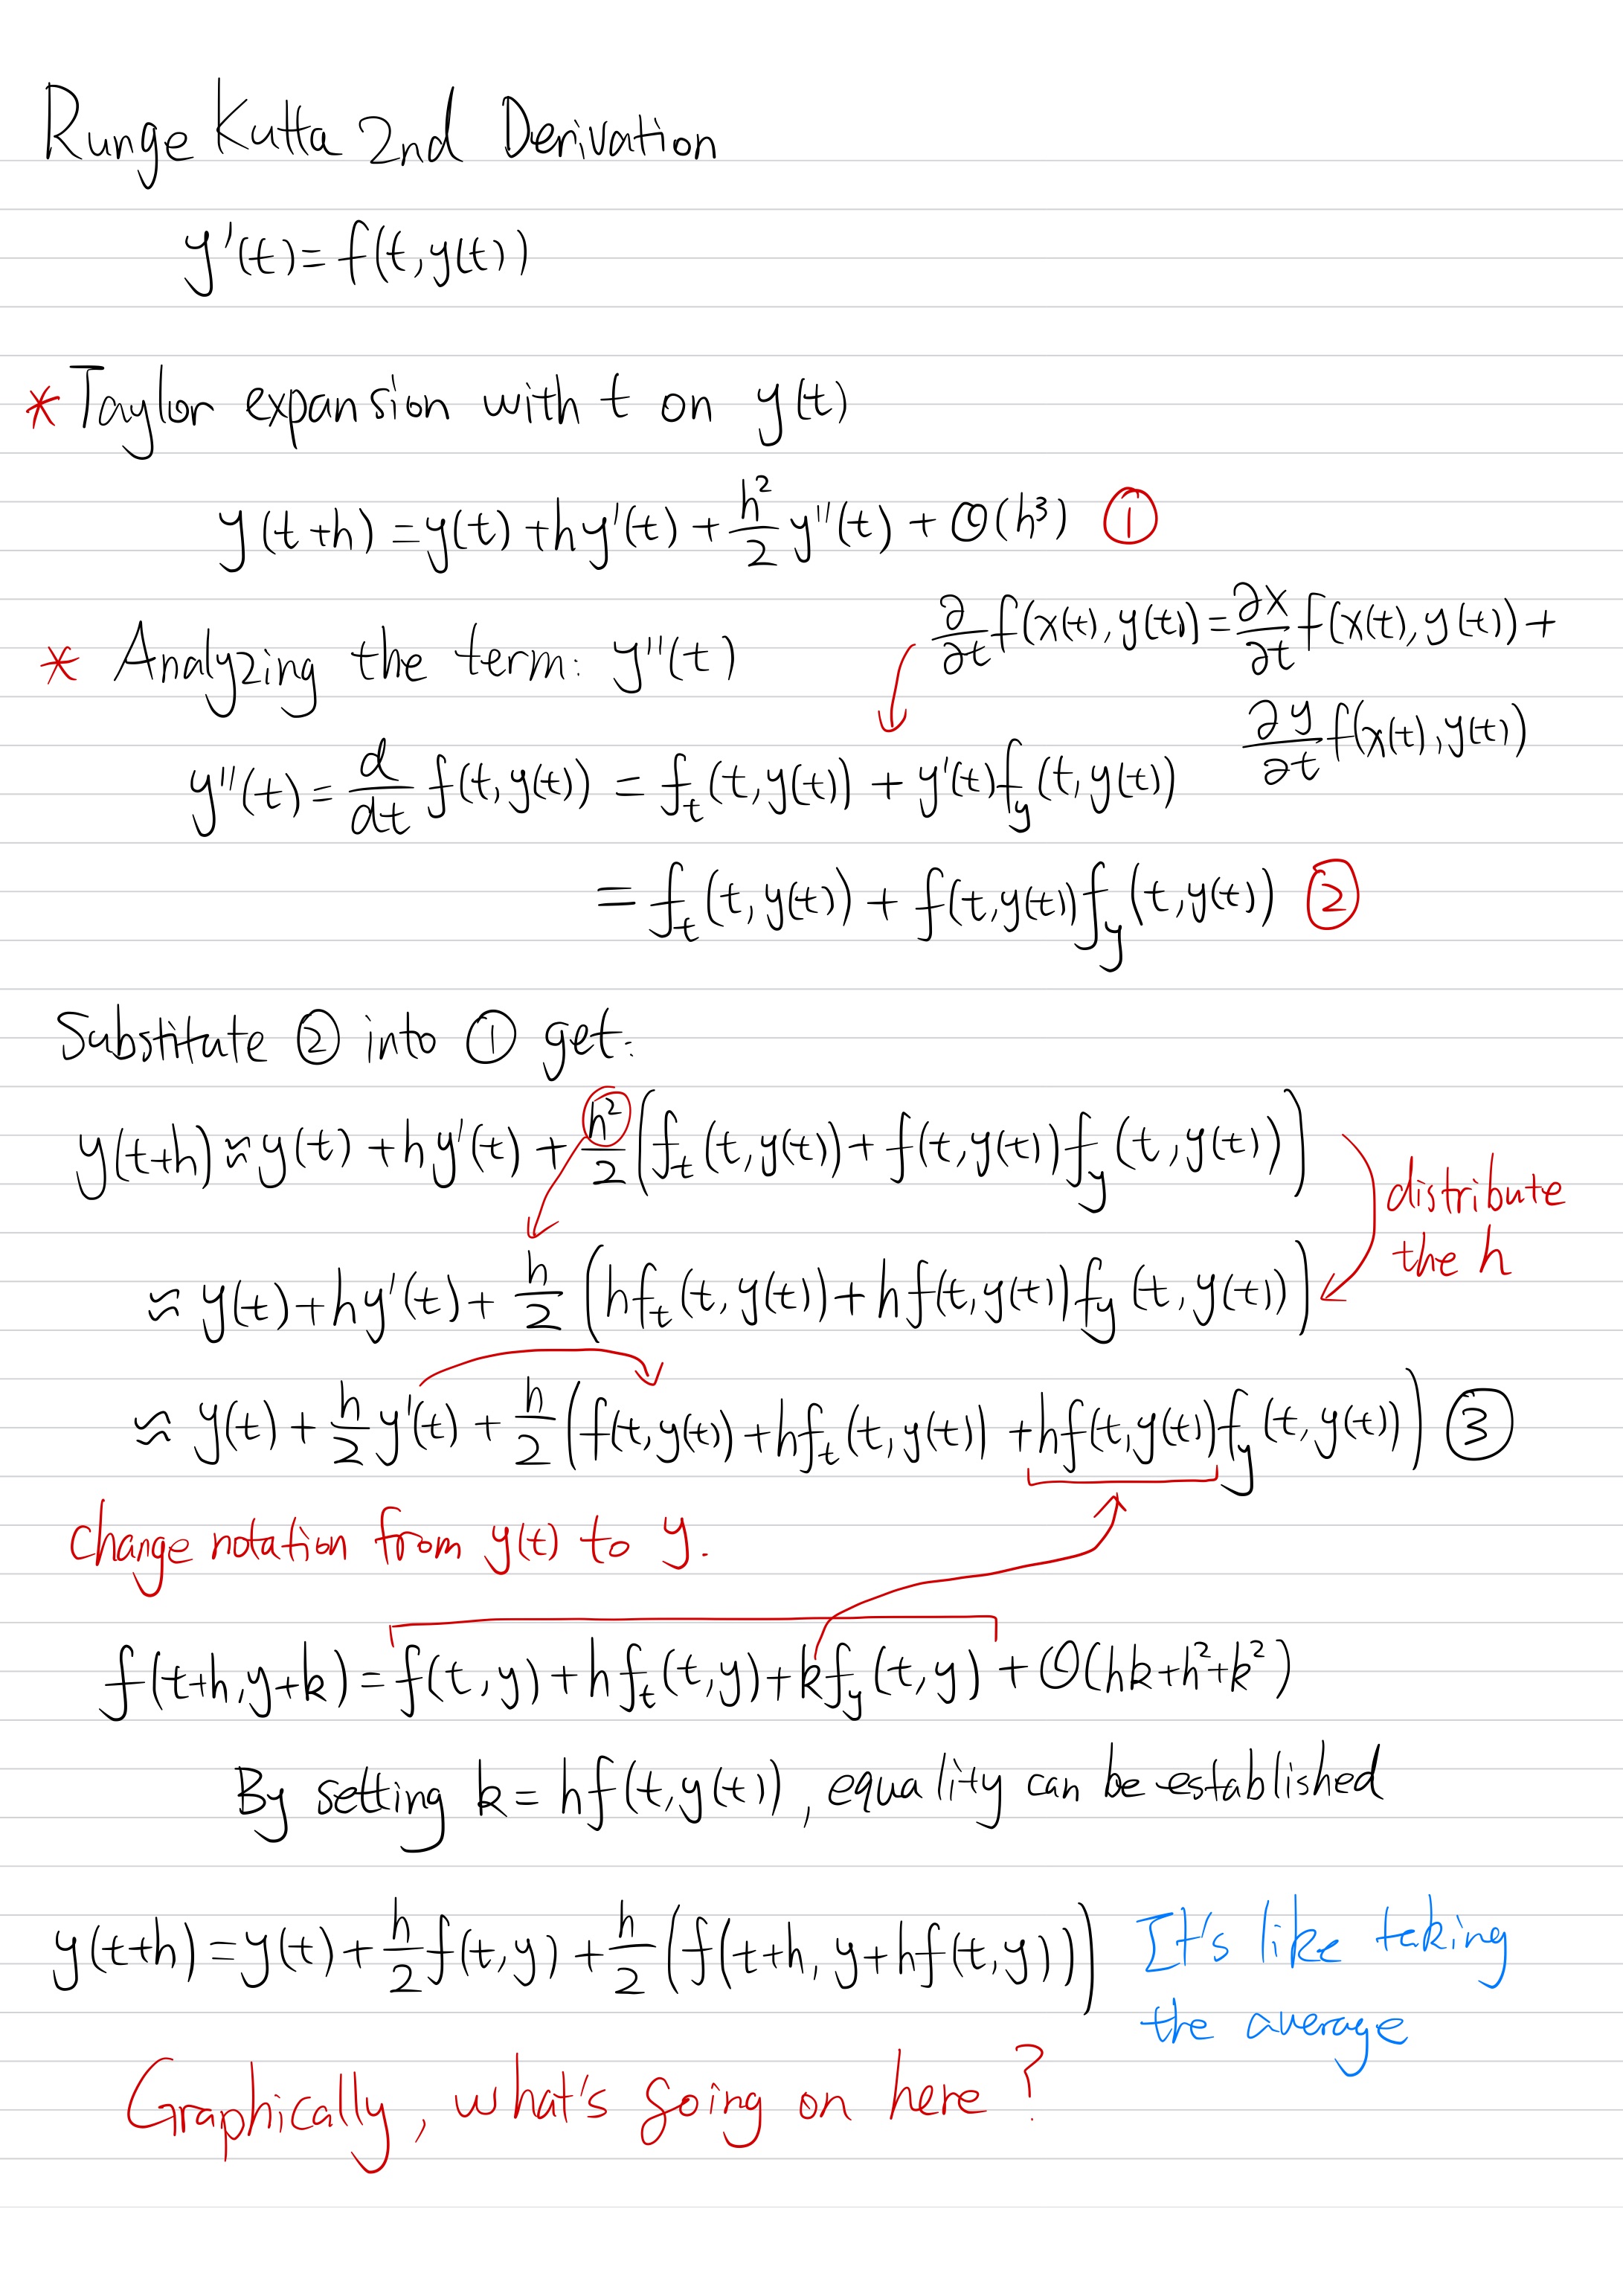 Runge Kutta 2nd Derivation
y'(t)=f(t,y(t))
* Taylor expansion with t on y(t)
y(t+h)=y(t)+hy'(t)+h²/2 y''(t)+O(h³) ①
* Analyzing the term: y''(t)
∂/∂t f(x(t),y(t))=∂x/∂t f(x(t),y(t))+
∂y/∂t f(x(t),y(t))
y''(t)=d/dt f(t,y(t))=f_t(t,y(t))+y'(t)f_y(t,y(t))
=f_t(t,y(t))+f(t,y(t))f_y(t,y(t)) ②
Substitute ② into ① get:
y(t+h)≈y(t)+hy'(t)+h²/2(f_t(t,y(t))+f(t,y(t))f_y(t,y(t)))
distribute
the h
≈y(t)+hy'(t)+h/2(hf_t(t,y(t))+hf(t,y(t))f_y(t,y(t)))
≈y(t)+h/2 y'(t)+h/2(f(t,y(t))+hf_t(t,y(t))+hf(t,y(t))f_y(t,y(t))) ③
Change notation from y(t) to y.
f(t+h,y+k)=f(t,y)+hf_t(t,y)+kf_y(t,y)+O(hk+h²+k²)
By setting k=hf(t,y(t)), equality can be established
y(t+h)=y(t)+h/2 f(t,y)+h/2(f(t+h,y+hf(t,y)))
It's like taking
the average
Graphically, what's going on here?